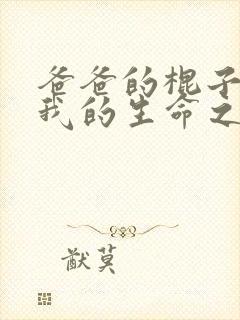 爸爸的棍子
我的生命之
猷莫